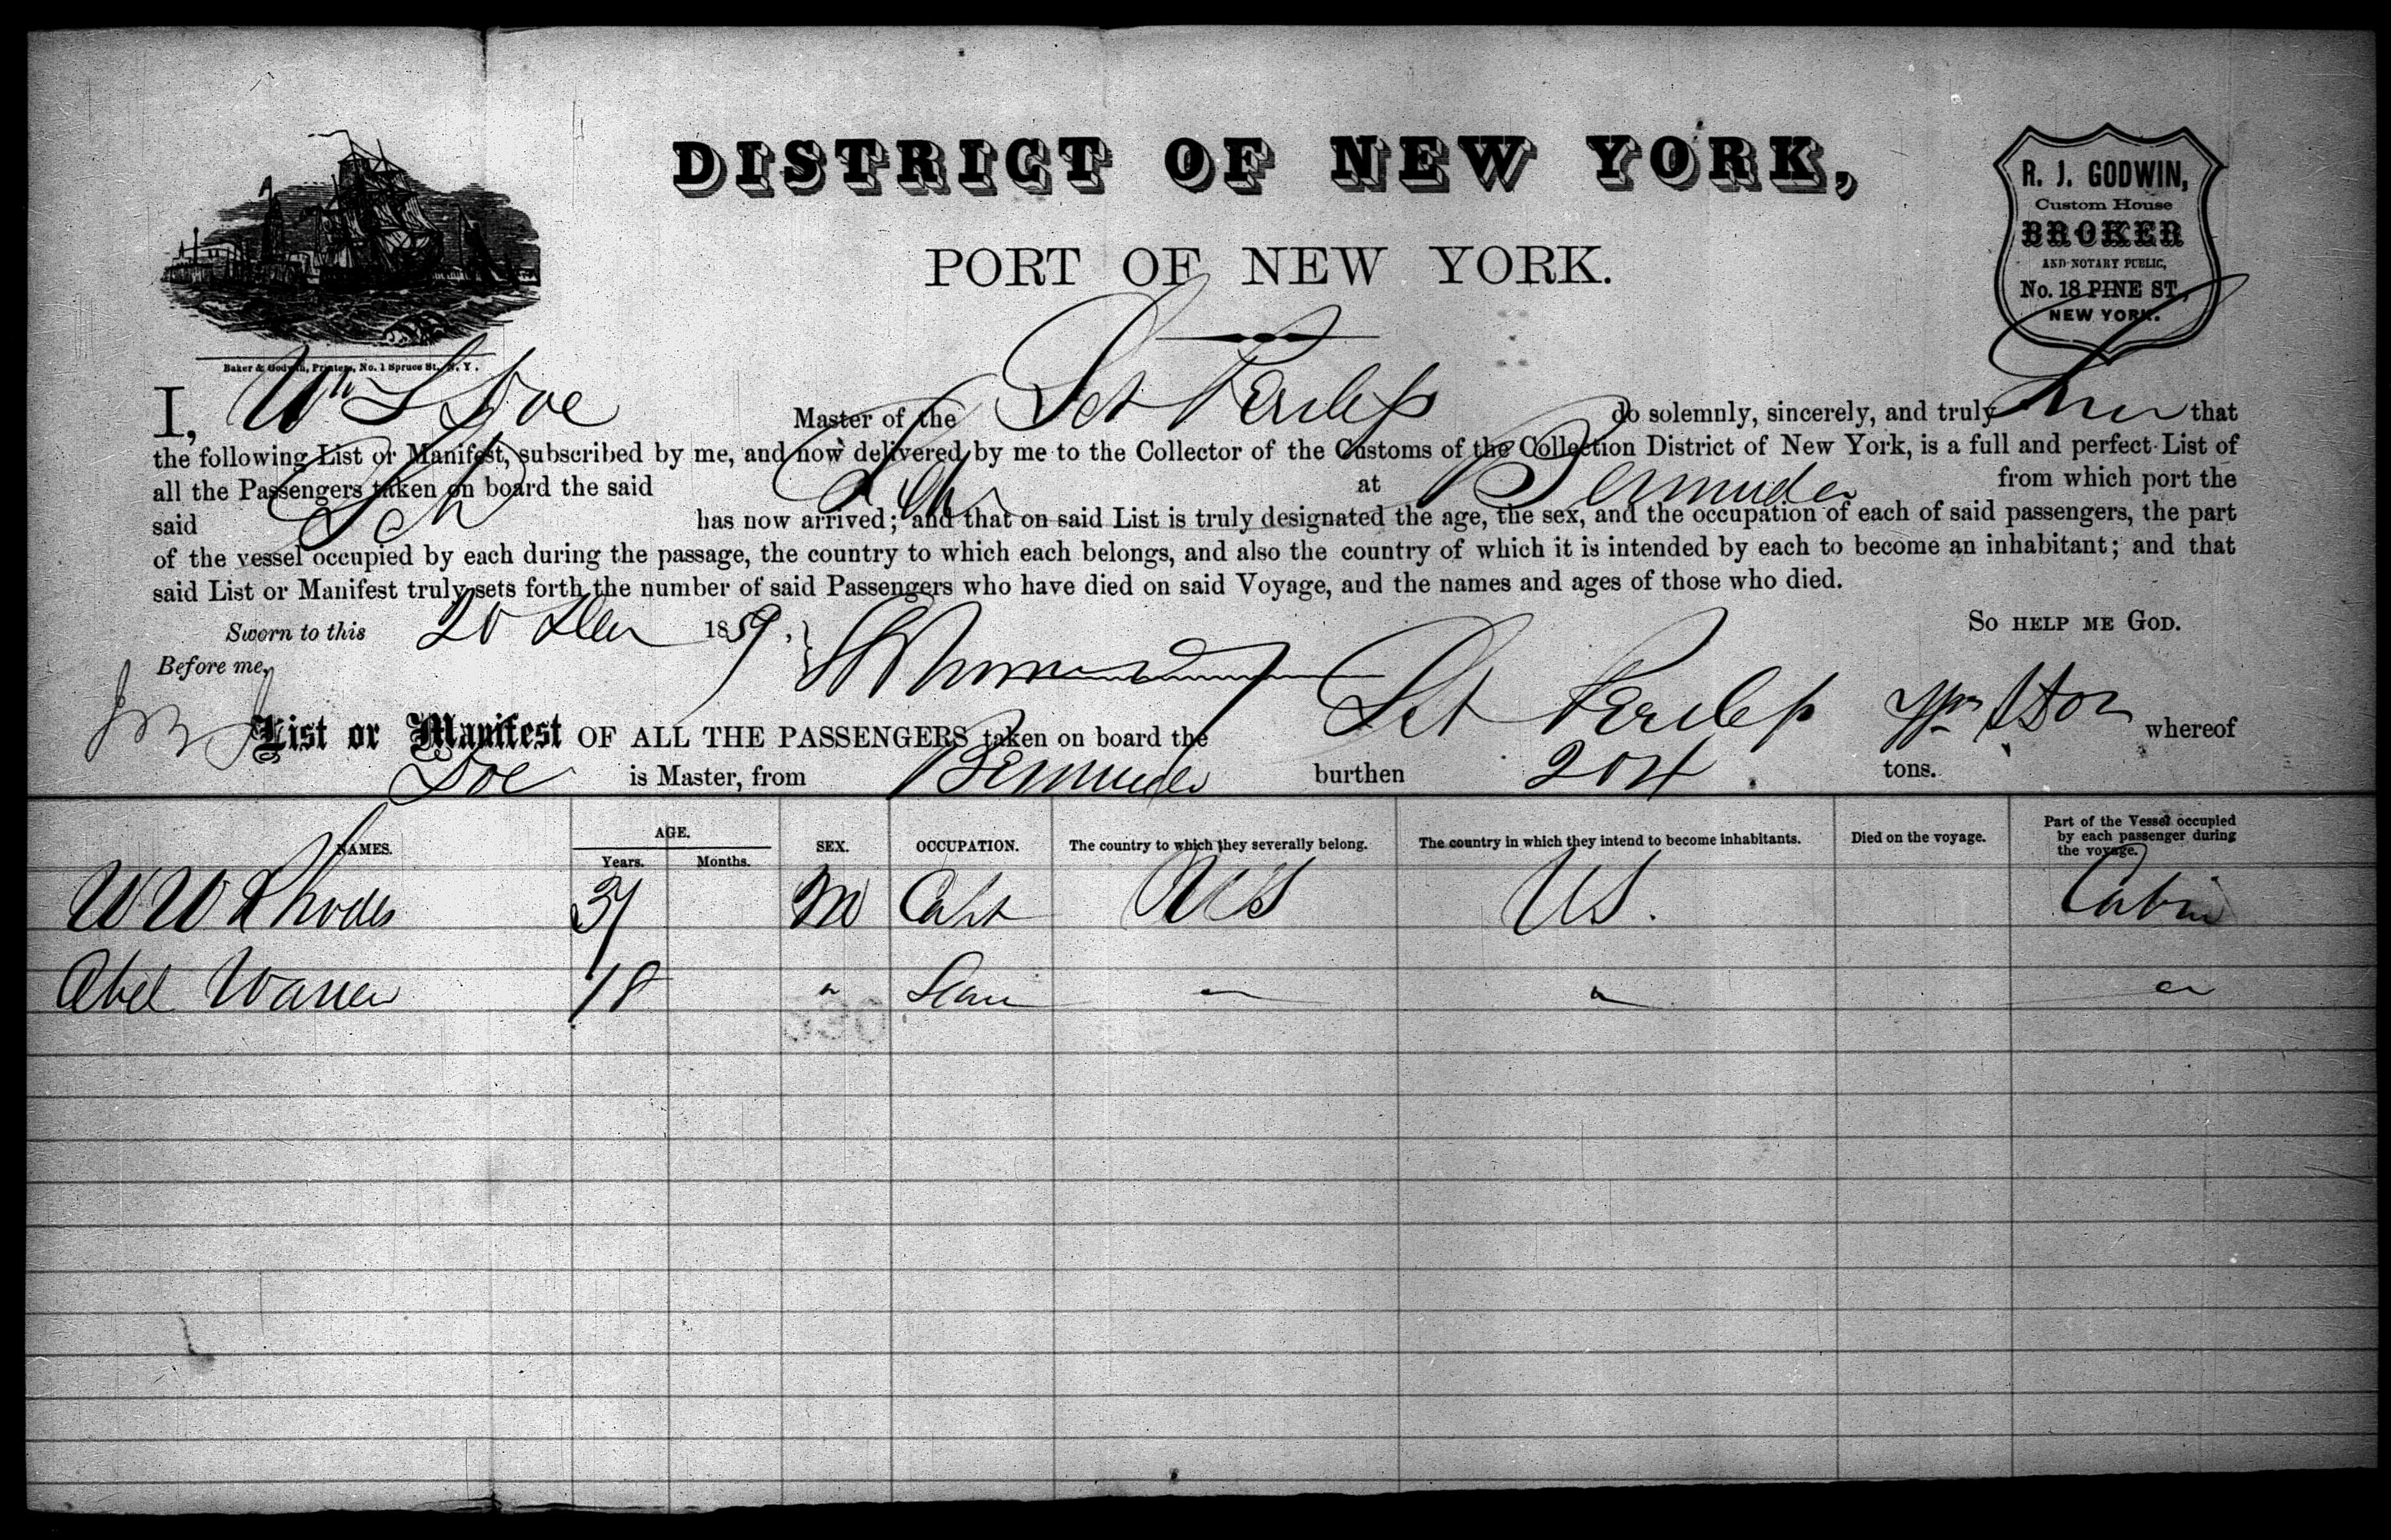 DISTRICT OF NEW YORK,
PORT OF NEW YORK.
R. J. GODWIN,
Custom House
BROKER
AND NOTARY PUBLIC,
No. 18 PINE ST,
NEW YORK.
Baker & Godwin, Printers, No. 1 Spruce St., N. Y.
I, Wm Doe Master of the do solemnly, sincerely, and truly that
the following List or Manifest, subscribed by me, and now delivered by me to the Collector of the Customs of the Collection District of New York, is a full and perfect List of
all the Passengers taken on board the said Sch at Bermuda from which port the
said Sch has now arrived; and that on said List is truly designated the age, the sex, and the occupation of each of said passengers, the part
of the vessel occupied by each during the passage, the country to which each belongs, and also the country of which it is intended by each to become an inhabitant; and that
said List or Manifest truly sets forth the number of said Passengers who have died on said Voyage, and the names and ages of those who died.
Sworn to this 20 1859. So HELP ME GOD.
Before me,
List or Manifest OF ALL THE PASSENGERS taken on board the whereof
Doe is Master, from Bermuda burthen 204 tons.
NAMES. AGE. Years. Months. SEX. OCCUPATION. The country to which they severally belong. The country in which they intend to become inhabitants. Died on the voyage. Part of the Vessel occupied by each passenger during the voyage.
W W Rhodes 37 M Capt US US. Cabin
Abel Warren 18 " Seam " " "